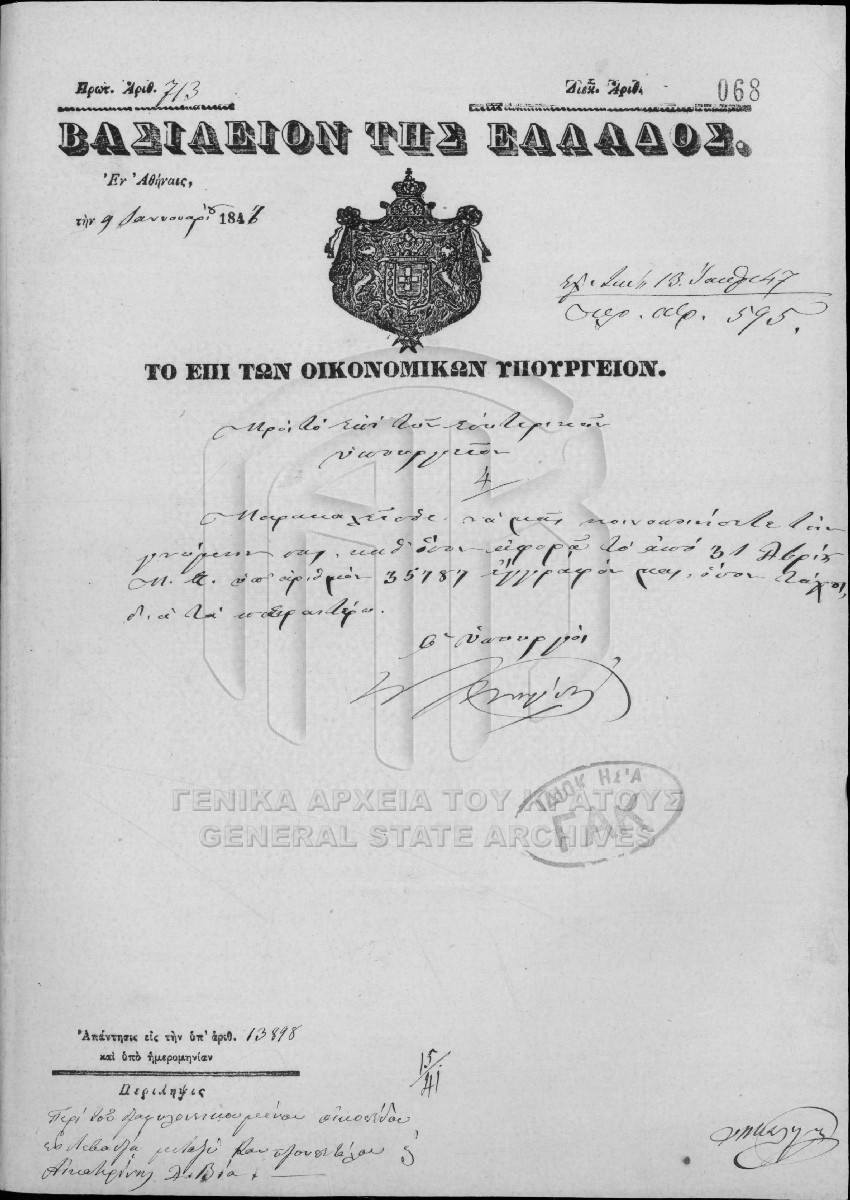 Πρωτ. Ἀριθ. 713
Διεκ. Ἀριθ.
068
ΒΑΣΙΛΕΙΟΝ ΤΗΣ ΕΛΛΑΔΟΣ.
Ἐν Ἀθήναις,
τὴν 9 Ἰαννουαρίου 1847
13 47
αρ. 595.
ΤΟ ΕΠΙ ΤΩΝ ΟΙΚΟΝΟΜΙΚΩΝ ΥΠΟΥΡΓΕΙΟΝ.
Πρὸς τὸ ἐπὶ τῶν Ἐσωτερικῶν
ὑπουργεῖον
Παρακαλεῖσθε νὰ μᾶς κοινοποιήσετε τὴν
γνώμην σας, καθ' ὅσον ἀφορᾶ τὸ ἀπὸ 31
ὑπ' ἀριθμὸν 35787 ἔγγραφόν μας, ὅσον τάχος,
διὰ τὰ περαιτέρω.
Ὁ ὑπουργὸς
ΙΔΙΟΚ ΗΣΙΑ
ΓΑΚ
ΓΕΝΙΚΑ ΑΡΧΕΙΑ ΤΟΥ ΚΡΑΤΟΥΣ
GENERAL STATE ARCHIVES
Ἀπάντησις εἰς τὴν ὑπ' ἀριθ. 13898
καὶ ὑπὸ ἡμερομηνίαν
15/41
Περίληψις
Περὶ τοῦ οἰκοπέδου
μεταξὺ
Αἰκατερίνης